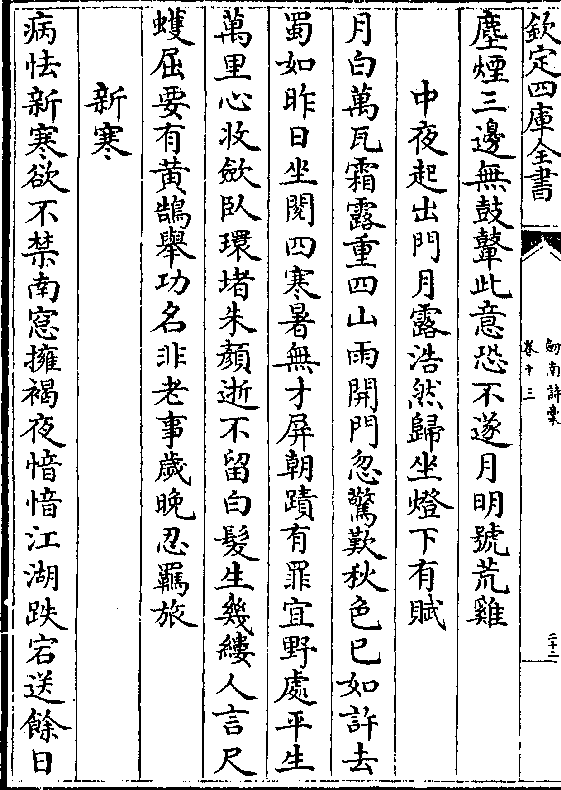 欽定四庫全書
劍南詩稾
卷十三
二十二
塵煙三邊無鼓鼙此意恐不遂月明號荒雞
中夜起出門月露浩然歸坐燈下有賦
月白萬瓦霜露重四山雨開門忽驚歎秋色已如許去
蜀如昨日坐閱四寒暑無才屏朝蹟有罪宜野處平生
萬里心收斂臥環堵朱顏逝不留白髮生幾縷人言尺
蠖屈要有黃鵠舉功名非老事歲晚忍羈旅
新寒
病怯新寒欲不禁南窻擁褐夜愔愔江湖跌宕送餘日